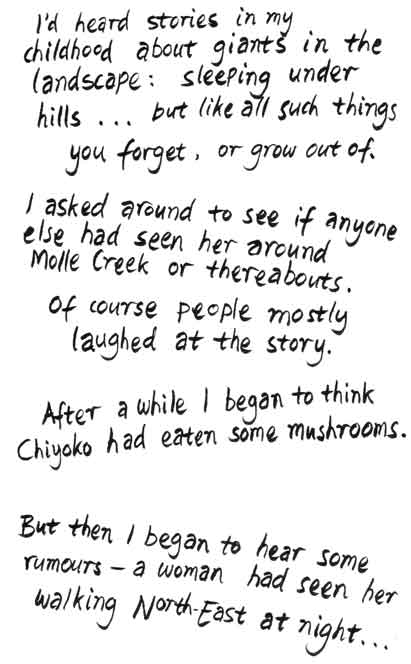 I'd heard stories in my
childhood about giants in the
landscape: sleeping under
hills ... but like all such things
you forget, or grow out of.
I asked around to see if anyone
else had seen her around
Molle Creek or thereabouts.
Of course people mostly
laughed at the story.
After a while I began to think
Chiyoko had eaten some mushrooms.
But then I began to hear some
rumours – a woman had seen her
walking North-East at night...